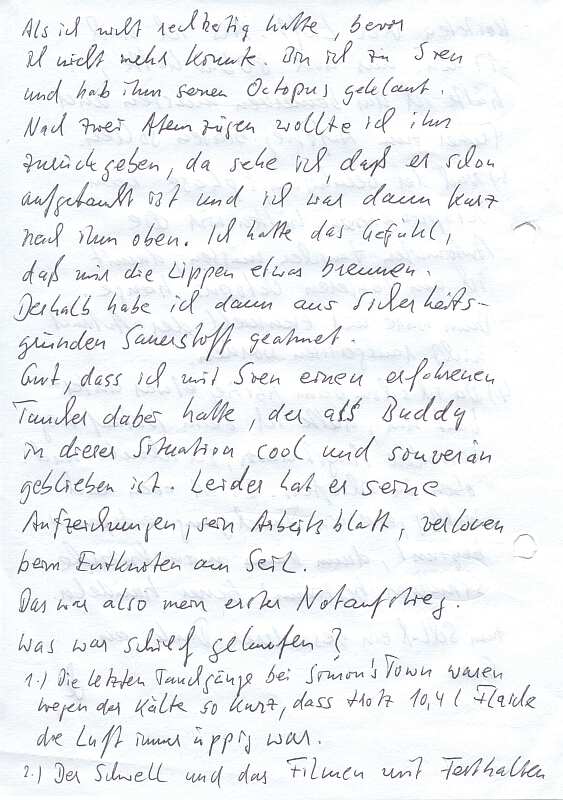 Als ich nicht rechtzeitig hatte, bevor
ich nicht mehr konnte. Bin ich zu Sven
und hab ihm seinen Octopus geklaut.
Nach zwei Atemzügen wollte ich ihn
zurückgeben, da sehe ich, daß er schon
aufgetaucht ist und ich war dann kurz
nach ihm oben. Ich hatte das Gefühl,
daß mir die Lippen etwas brennen.
Deshalb habe ich dann aus Sicherheits-
gründen Sauerstoff geatmet.
Gut, dass ich mit Sven einen erfahrenen
Taucher dabei hatte, der als Buddy
in dieser Situation cool und souverän
geblieben ist. Leider hat er seine
Aufzeichnungen, sein Arbeitsblatt, verloren
beim Entknoten am Seil.
Das war also mein erster Notaufstieg.
Was war schief gelaufen?
1.) Die letzten Tauchgänge bei Simon's Town waren
wegen der Kälte so kurz, dass trotz 10,4 l Flasche
die Luft immer üppig war.
2.) Der Schwell und das Filmen mit Festhalten